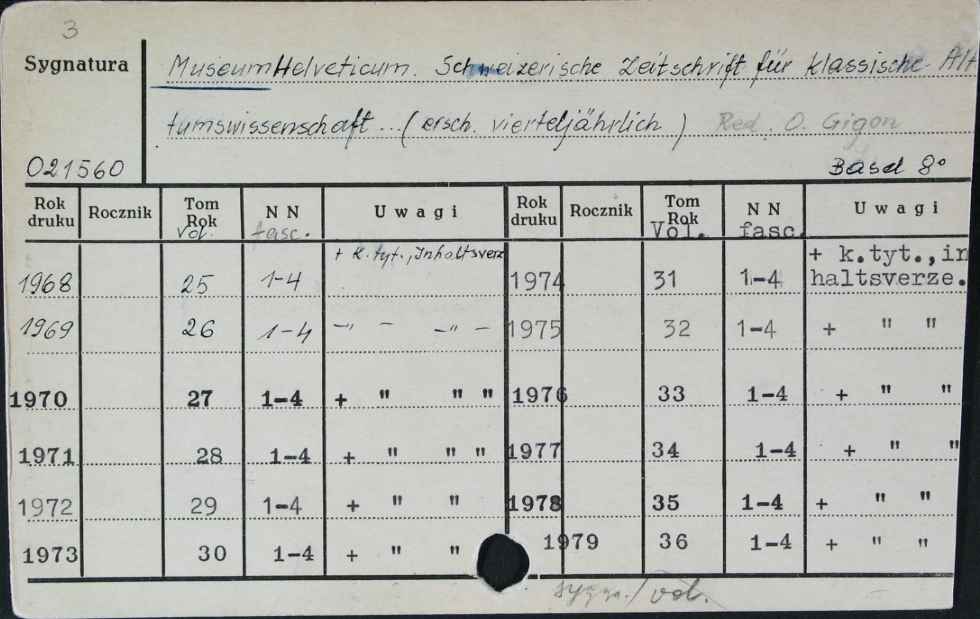 3
Sygnatura Museum Helveticum. Schweizerische Zeitschrift für klassische Alt
tumswissenschaft... (ersch. vierteljährlich) Red. O. Gigon
021560 Basel 8°
Rok druku Rocznik Tom Rok Vol. NN fasc. Uwagi Rok druku Rocznik Tom Rok Vol. NN fasc. Uwagi
1968 25 1-4 + k. tyt., Inhaltsverz 1974 31 1-4 + k.tyt.,in haltsverze.
1969 26 1-4 -"- -"- 1975 32 1-4 + " "
1970 27 1-4 + " " " 1976 33 1-4 + " "
1971 28 1-4 + " " " 1977 34 1-4 + " "
1972 29 1-4 + " " 1978 35 1-4 + " "
1973 30 1-4 + " " 1979 36 1-4 + " "
sygn./vol.